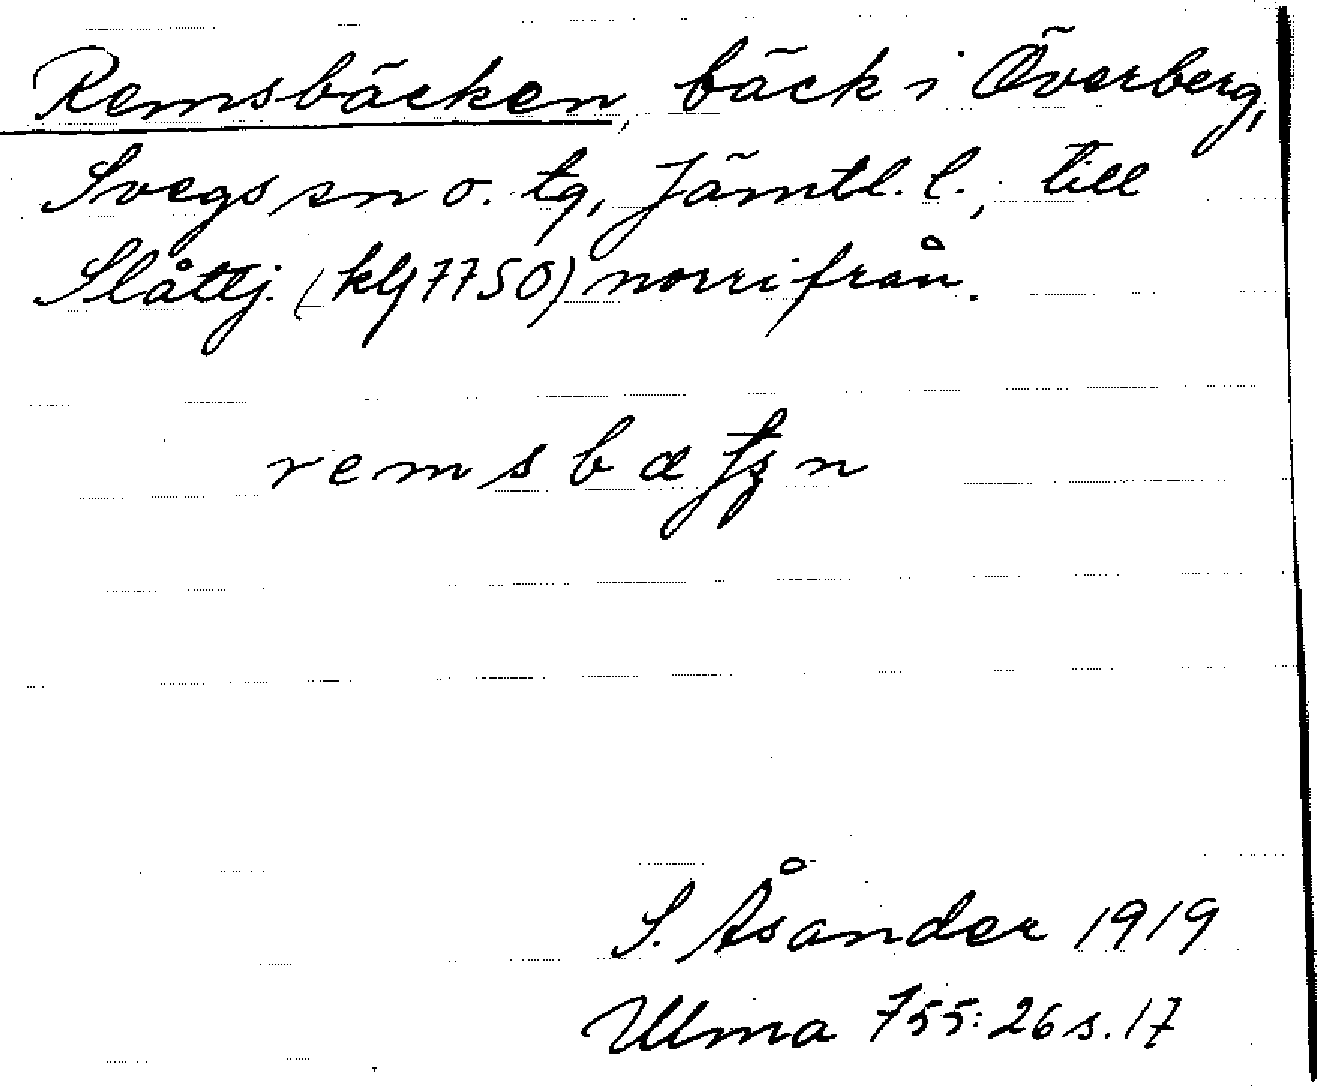 Remsbäcken, bäck i Överberg,
Svegs sn o. tg, Jämtl. l., till
Slåttj. (klg 7750) norrifrån.
S. Åsander 1919
Ulma 755:26 s. 17